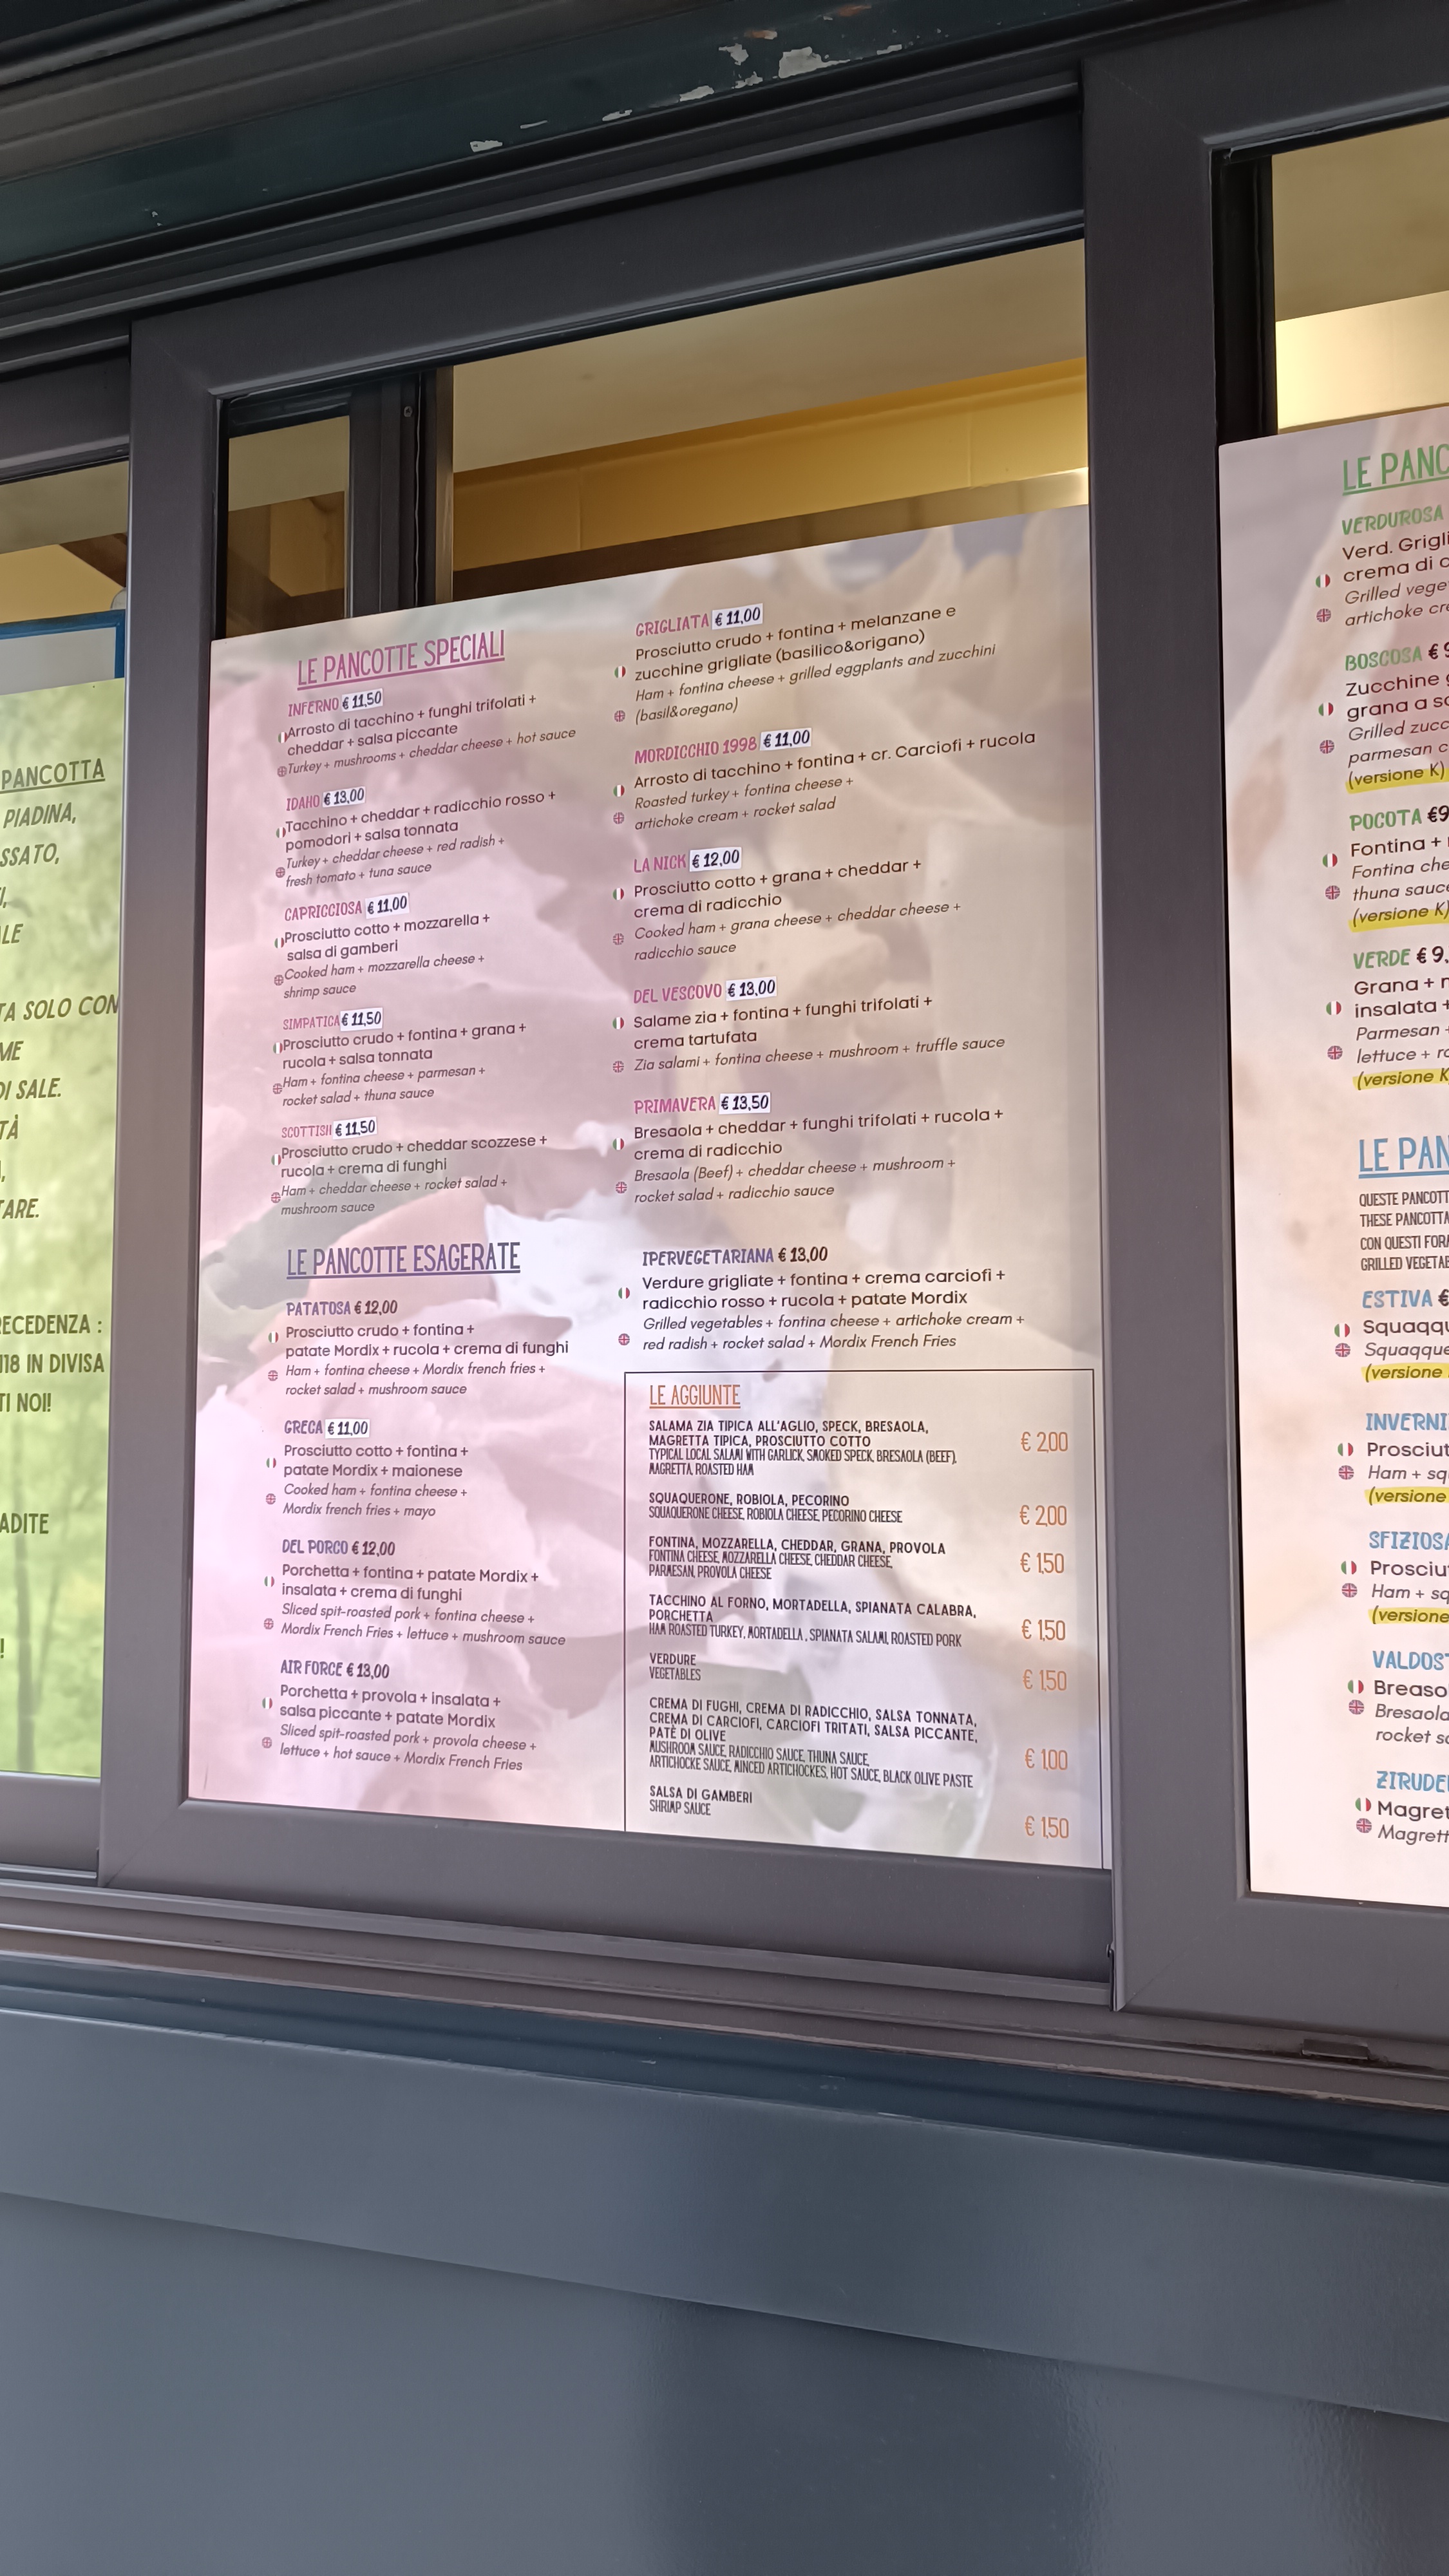 PANCOTTA
PIADINA,
SSATO,
LE
TA SOLO CON
ME
DI SALE.
TÀ
TARE.
RECEDENZA :
118 IN DIVISA
TI NOI!
ADITE
LE PANCOTTE SPECIALI
INFERNO € 11,50
Arrosto di tacchino + funghi trifolati +
cheddar + salsa piccante
Turkey + mushrooms + cheddar cheese + hot sauce
IDAHO € 13,00
Tacchino + cheddar + radicchio rosso +
pomodori + salsa tonnata
Turkey + cheddar cheese + red radish +
fresh tomato + tuna sauce
CAPRICCIOSA € 11,00
Prosciutto cotto + mozzarella +
salsa di gamberi
Cooked ham + mozzarella cheese +
shrimp sauce
SIMPATICA € 11,50
Prosciutto crudo + fontina + grana +
rucola + salsa tonnata
Ham + fontina cheese + parmesan +
rocket salad + thuna sauce
SCOTTISH € 11,50
Prosciutto crudo + cheddar scozzese +
rucola + crema di funghi
Ham + cheddar cheese + rocket salad +
mushroom sauce
GRIGLIATA € 11,00
Prosciutto crudo + fontina + melanzane e
zucchine grigliate (basilico&origano)
Ham + fontina cheese + grilled eggplants and zucchini
(basil&oregano)
MORDICCHIO 1998 € 11,00
Arrosto di tacchino + fontina + cr. Carciofi + rucola
Roasted turkey + fontina cheese +
artichoke cream + rocket salad
LA NICK € 12,00
Prosciutto cotto + grana + cheddar +
crema di radicchio
Cooked ham + grana cheese + cheddar cheese +
radicchio sauce
DEL VESCOVO € 13,00
Salame zia + fontina + funghi trifolati +
crema tartufata
Zia salami + fontina cheese + mushroom + truffle sauce
PRIMAVERA € 13,50
Bresaola + cheddar + funghi trifolati + rucola +
crema di radicchio
Bresaola (Beef) + cheddar cheese + mushroom +
rocket salad + radicchio sauce
LE PANCOTTE ESAGERATE
PATATOSA € 12,00
Prosciutto crudo + fontina +
patate Mordix + rucola + crema di funghi
Ham + fontina cheese + Mordix french fries +
rocket salad + mushroom sauce
GRECA € 11,00
Prosciutto cotto + fontina +
patate Mordix + maionese
Cooked ham + fontina cheese +
Mordix french fries + mayo
DEL PORCO € 12,00
Porchetta + fontina + patate Mordix +
insalata + crema di funghi
Sliced spit-roasted pork + fontina cheese +
Mordix French Fries + lettuce + mushroom sauce
AIR FORCE € 13,00
Porchetta + provola + insalata +
salsa piccante + patate Mordix
Sliced spit-roasted pork + provola cheese +
lettuce + hot sauce + Mordix French Fries
IPERVEGETARIANA € 13,00
Verdure grigliate + fontina + crema carciofi +
radicchio rosso + rucola + patate Mordix
Grilled vegetables + fontina cheese + artichoke cream +
red radish + rocket salad + Mordix French Fries
LE AGGIUNTE
SALAMA ZIA TIPICA ALL'AGLIO, SPECK, BRESAOLA,
MAGRETTA TIPICA, PROSCIUTTO COTTO € 2,00
TYPICAL LOCAL SALAMI WITH GARLICK, SMOKED SPECK, BRESAOLA (BEEF),
MAGRETTA, ROASTED HAM
SQUAQUERONE, ROBIOLA, PECORINO
SQUAQUERONE CHEESE, ROBIOLA CHEESE, PECORINO CHEESE € 2,00
FONTINA, MOZZARELLA, CHEDDAR, GRANA, PROVOLA
FONTINA CHEESE, MOZZARELLA CHEESE, CHEDDAR CHEESE, € 1,50
PARMESAN, PROVOLA CHEESE
TACCHINO AL FORNO, MORTADELLA, SPIANATA CALABRA,
PORCHETTA
HAM ROASTED TURKEY, MORTADELLA , SPIANATA SALAMI, ROASTED PORK € 1,50
VERDURE
VEGETABLES € 1,50
CREMA DI FUGHI, CREMA DI RADICCHIO, SALSA TONNATA,
CREMA DI CARCIOFI, CARCIOFI TRITATI, SALSA PICCANTE,
PATÈ DI OLIVE
MUSHROOM SAUCE, RADICCHIO SAUCE, THUNA SAUCE, € 1,00
ARTICHOCKE SAUCE, MINCED ARTICHOCKES, HOT SAUCE, BLACK OLIVE PASTE
SALSA DI GAMBERI
SHRIMP SAUCE € 1,50
LE PANC
VERDUROSA
Verd. Grigli
crema di c
Grilled vege
artichoke cre
BOSCOSA € 9
Zucchine g
grana a sc
Grilled zucc
parmesan c
(versione K)
POCOTA €9
Fontina +
Fontina che
thuna sauc
(versione K)
VERDE € 9.
Grana + r
insalata +
Parmesan +
lettuce + ro
(versione K
LE PAN
QUESTE PANCOTT
THESE PANCOTTA
CON QUESTI FORA
GRILLED VEGETAB
ESTIVA €
Squaqqu
Squaqque
(versione
INVERNI
Prosciut
Ham + sq
(versione
SFIZIOSA
Prosciut
Ham + sq
(versione
VALDOST
Breaso
Bresaola
rocket sa
ZIRUDEL
Magret
Magrett